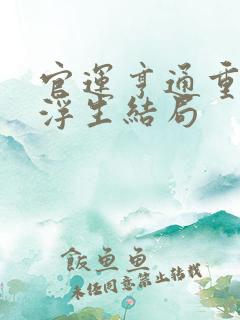 官運亨通重
浮生結局
飯魚魚
未經同意禁止轉載